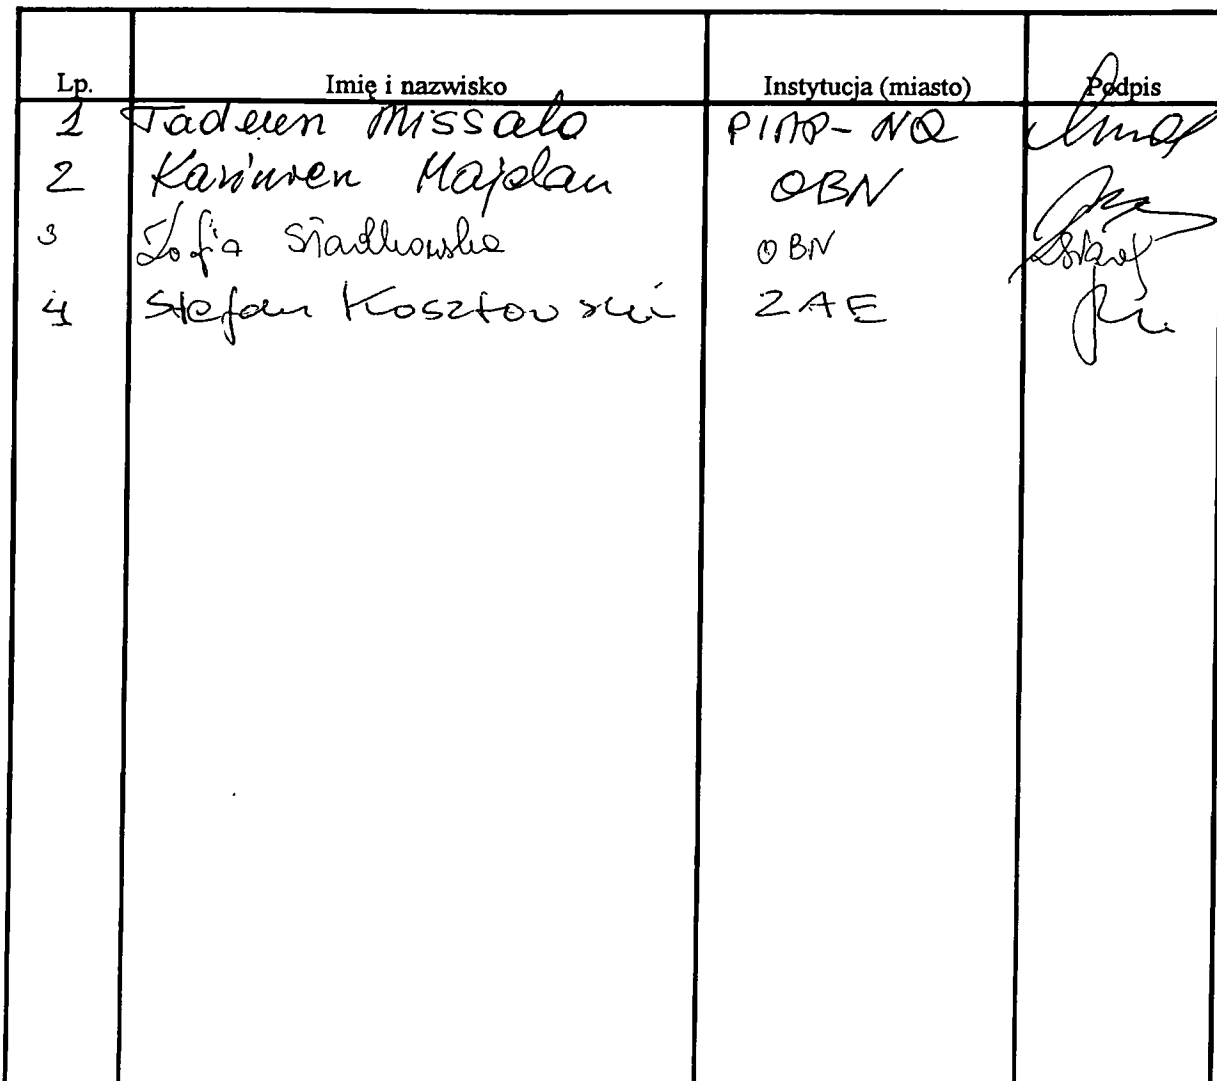 Lp. Imię i nazwisko Instytucja (miasto) Podpis
1 Tadeusz Missala PIAP-NQ
2 Kazimierz Majdan OBN
3 Zofia OBN
4 Stefan Kosztowski ZAE